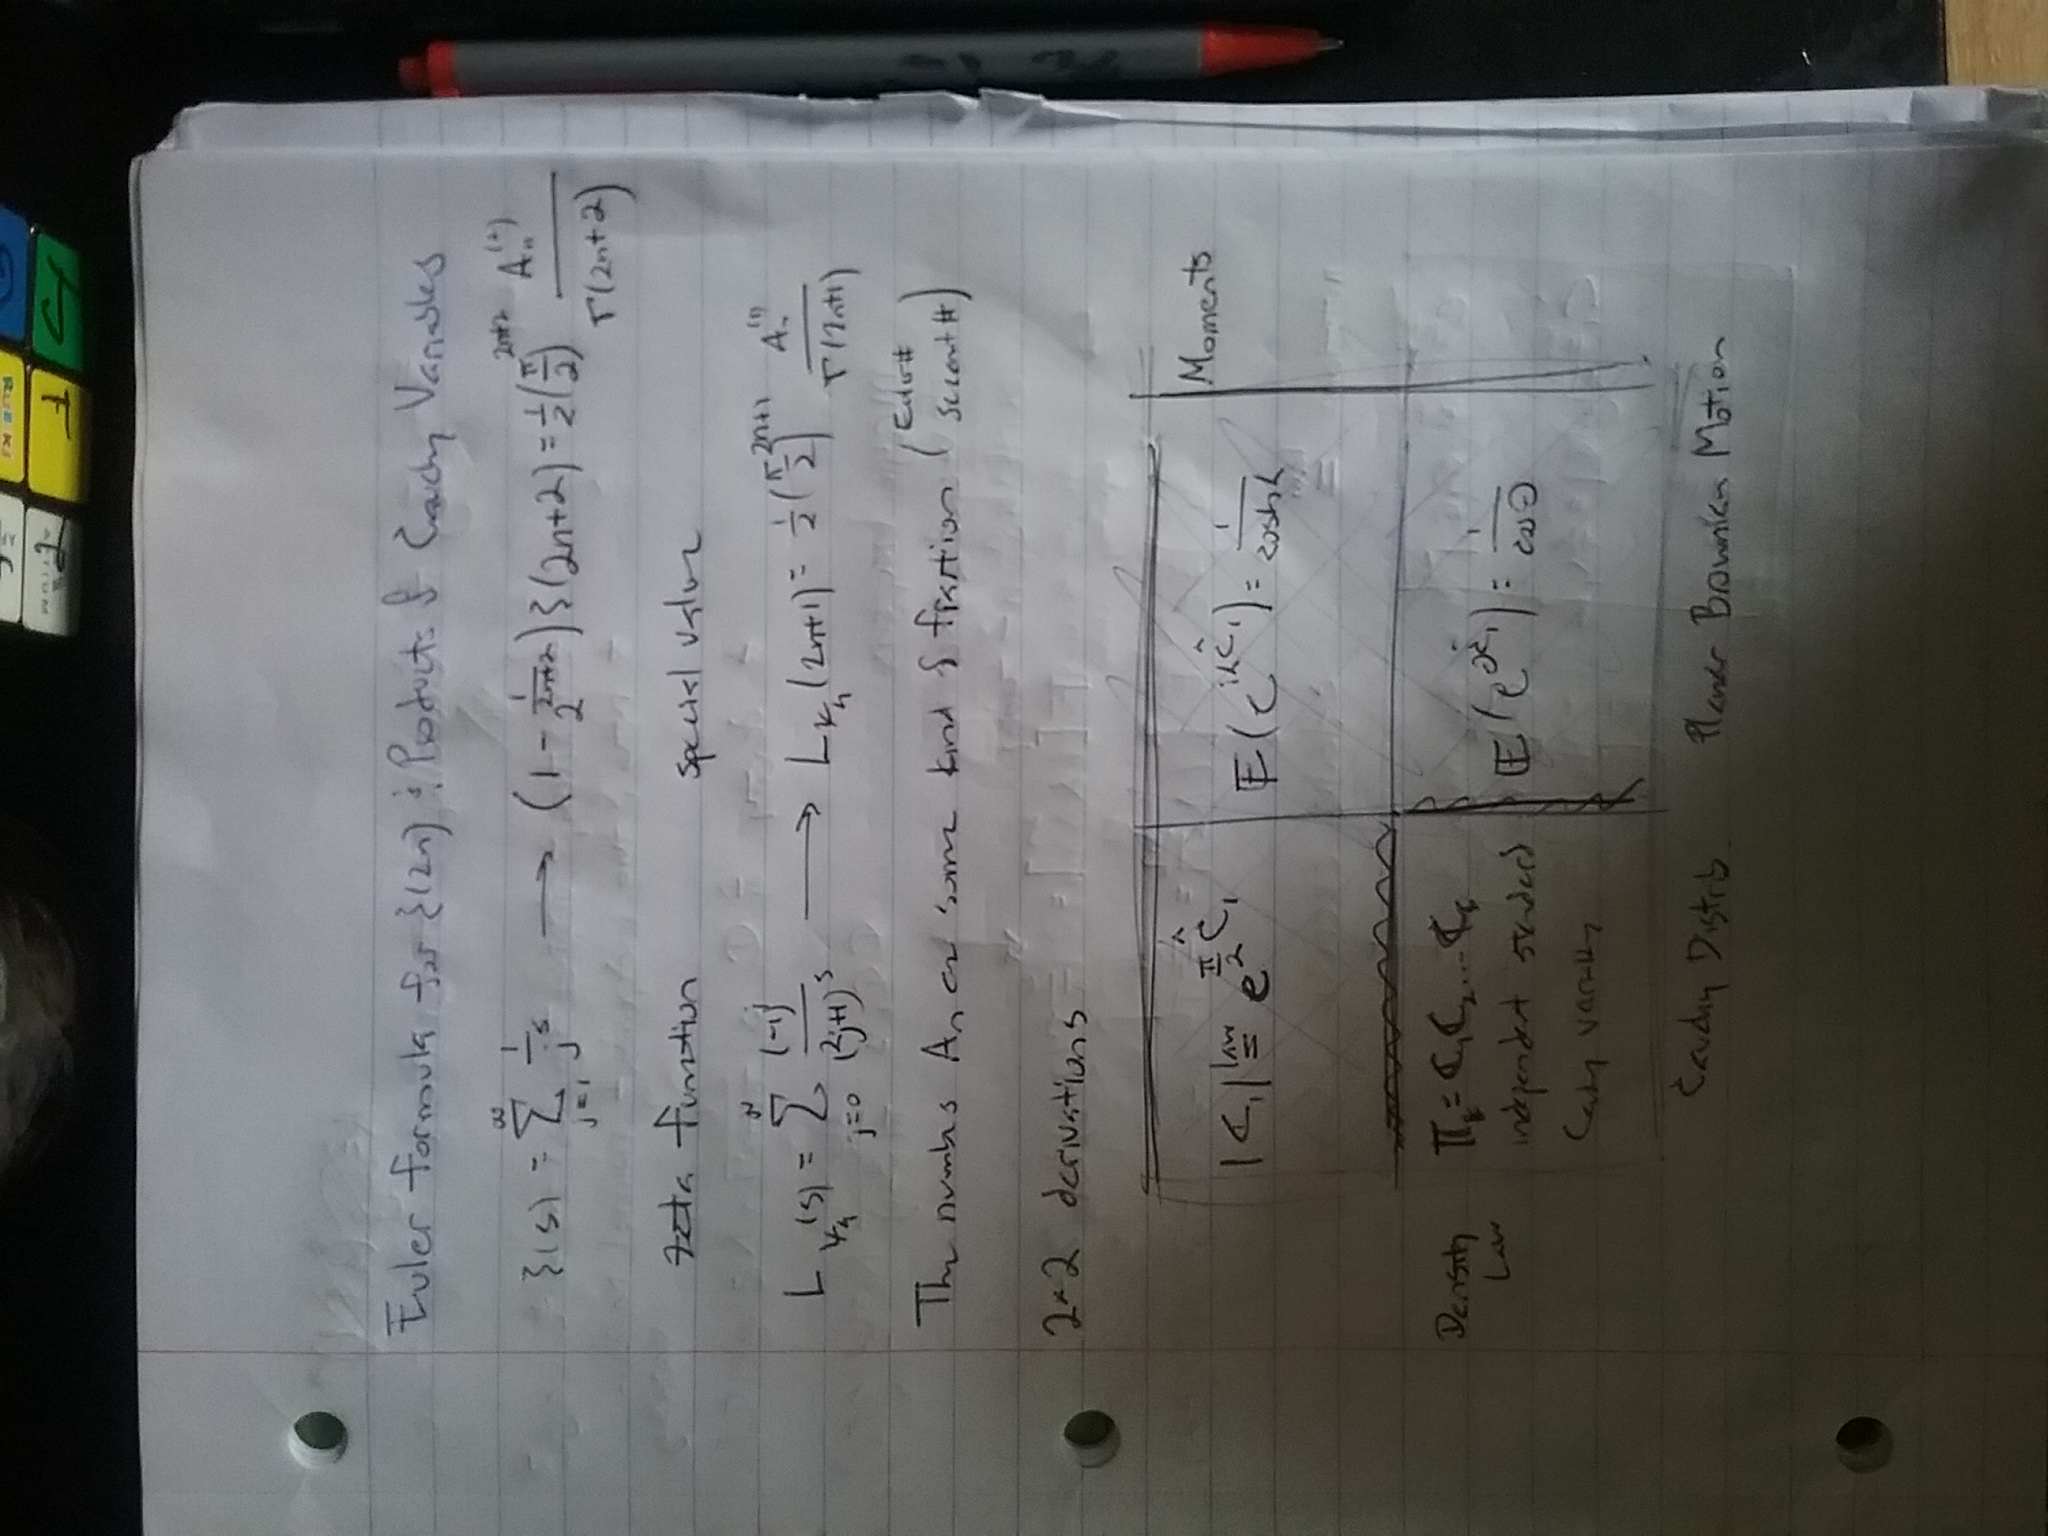 Euler formula for ξ(2n) & Products of Cauchy Variables
ξ(s) = ∑_{j=1}^{∞} 1/j^s → (1 - 1/2^{2n+2}) ξ(2n+2) = 1/2 (π/2)^{2n+2} A_n^{(2)} / Γ(2n+2)
zeta function special value
L_{χ_4}(s) = ∑_{j=0}^{∞} (-1)^j / (2j+1)^s → L_{χ_4}(2n+1) = 1/2 (π/2)^{2n+1} A_n^{(1)} / Γ(2n+1)
The numbers A_n are some kind of fraction (Euler # Secant #)
2×2 derivations
|ℂ_1| law= e^{π/2 Ĉ_1} 𝔼(e^{iλĈ_1}) = 1/cosh λ Moments
Density Law
Π_k = ℂ_1 ℂ_2 ... ℂ_k
independent standard
Cauchy variables
𝔼(e^{θĈ_1}) = 1/cos θ
Cauchy Distrib. Planar Brownian Motion